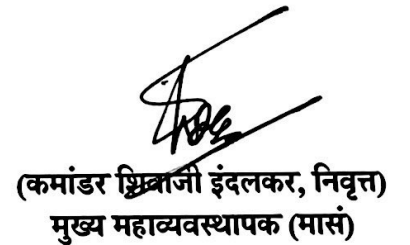 (कमांडर शिवाजी इंदलकर, निवृत्त)
मुख्य महाव्यवस्थापक (मासं)